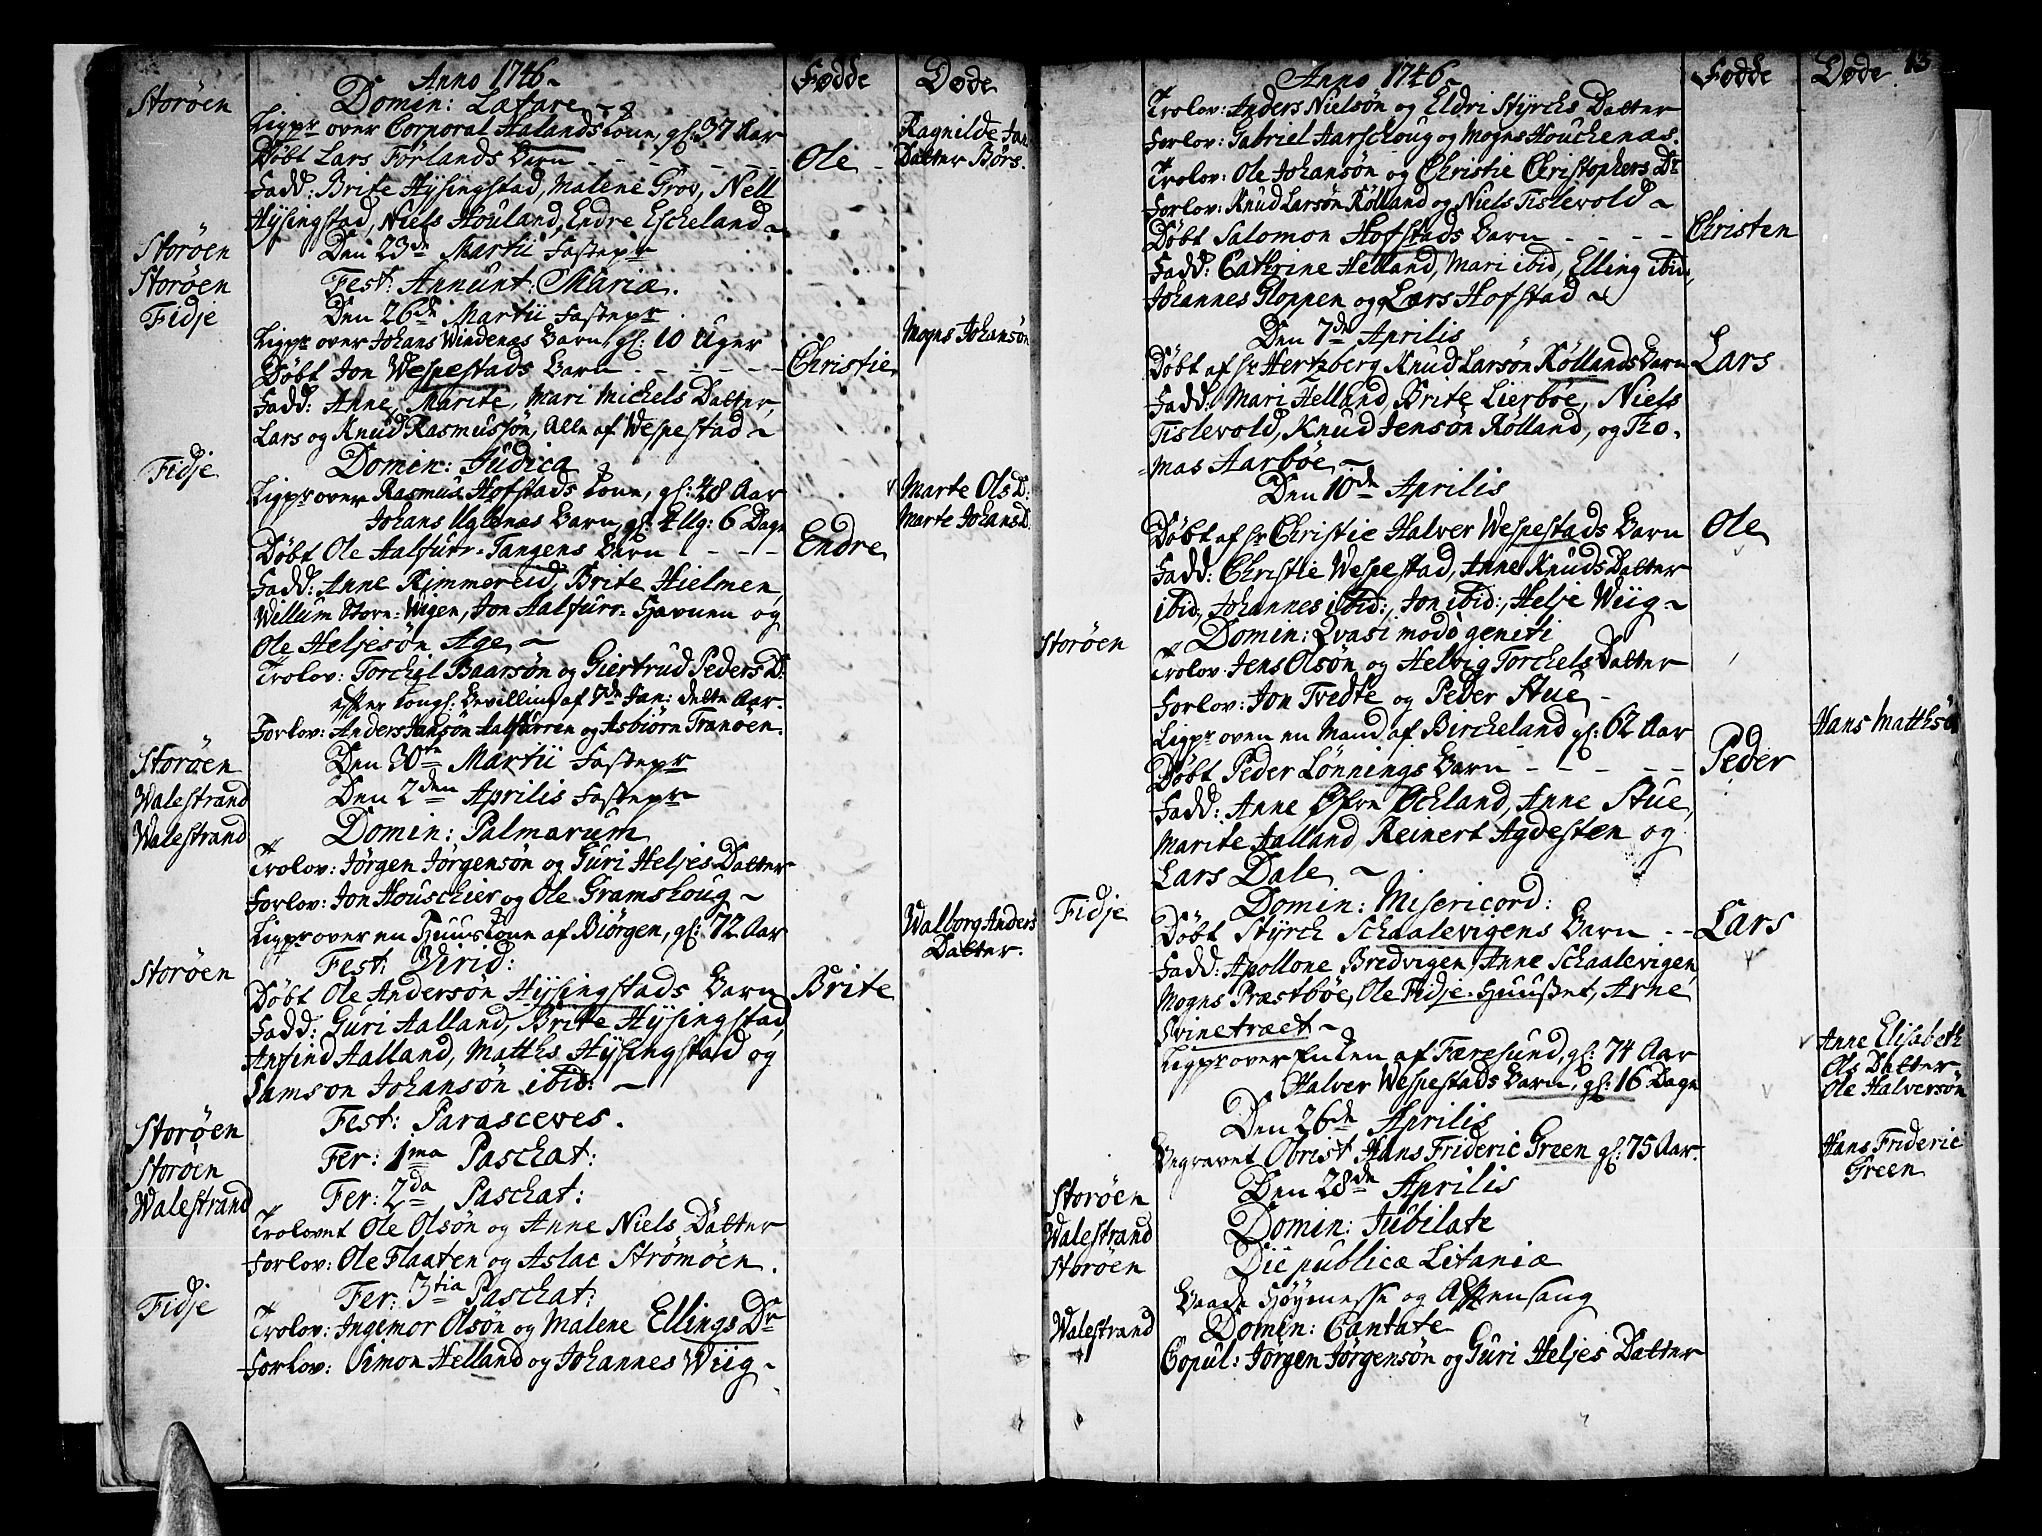 Anno 1746 Fødde Døde
Storöen Domin: Lætare
Ligpr over Corporal Halands Kone, gl: 37 Aar Ragnilde Jan
Döbt Lars Förlands Barn Ole Datter Börs.
Fadd: Brite Hÿsingstad, Malene Grov, Nell
Hÿsingstad, Niels Houland, Endre Escheland
Storöen Den 23de Martii Fastepr
Storöen Fest: Annunt: Mariæ.
Fidje Den 26de Martii Fastepr
Ligpr over Johans Windenæs Barn, gl: 10 Uger Mogns Johansön
Döbt Jon Wespestads Barn Christie
Fadd: Anne, Marite, Mari Michels Datter,
Lars og Knud Rasmussön, Alle af Wespestad
Fidje Domin: Judica
Ligpr over Rasmus Hofstads Kone, gl: 48 Aar Marte Ols D:
Johans Uglenæs Barn, gl: 4 Ug: 6 Dage Marte Johans D.
Döbt Ole Aalfurr-Tangens Barn Endre
Fadd: Anne Rimmereid, Brite Hielmen,
Willum Store-Wigen, Jon Aalfurr-Havnen og
Ole Heljesön Age
Trolov: Torchil Baarsön og Giertrud Peders D:
efter kongl: Bevilling af 7de Jan: dette Aar.
Forlov: Anders Jansön Aalfurren og Asbiörn Tranöen.
Storöen Den 30te Martii Fastepr
Walestrand Den 2den Aprilis Fastepr
Walestrand Domin: Palmarum
Trolov: Jörgen Jörgensön og Guri Heljes Datter
Forlov: Jon Houschier og Ole Gramshoug
Ligpr over en Huuskone af Biörgen, gl: 72 Aar Walborg Anders
Datter.
Storöen Fest: Virid:
Döbt Ole Anderson Hÿsingstads Barn Brite
Fadd: Guri Aalland, Brite Hÿsingstad,
Anfind Aalland, Matths Hÿsingstad og
Samson Johansön ibid:
Storöen Fest: Parasceves.
Storöen Fer: 1ma Paschat:
Walestrand Fer: 2da Paschat:
Trolovet Ole Olsön og Anne Niels Datter
Forlov: Ole Flaaten og Aslac Strömöen.
Fidje Fer: 3tia Paschat:
Trolov: Ingemor Olsön og Malene Ellings Dr
Forlov: Simon Helland og Johannes Wiig
Anno 1746 Fødde Døde 13
Trolov: Anders Nielsön og Eldri Stÿrchs Datter
Forlov: Gabriel Aarschoug og Mogns Houchenæs.
Trolov: Ole Johansön og Christie Christophers Dr
Forlov: Knud Larsön Rölland og Niels Tislevold
Döbt Salomon Hofstads Barn Christen
Fadd: Cathrine Helland, Mari ibid, Elling ibid,
Johannes Gloppen og Lars Hofstad
Den 7de Aprilis
Döbt af Hr Hertzberg Knud Larsön Röllands Barn Lars
Fadd: Mari Helland, Brite Lierböe, Niels
Tislevold, Knud Jensön Rölland, og Tho-
mas Aarböe
Den 10de Aprilis
Döbt af Hr Christie Halver Wespestads Barn Ole
Fadd: Christie Wespestad, Anne Knuds Datter
ibid., Johannes ibid:, Jon ibid:, Helje Wiig
Storöen Domin: Qvasi modo geniti
Trolov Jens Olsön og Helvig Torchels Datter
Forlov: Jon Tvedte og Peder Stue
Ligpr oven en Mand af Bircheland gl: 62 Aar Hans Matthsö
Döbt Peder Lönnings Barn Peder
Fadd: Anne Øfre Ochland, Anne Stue,
Marite Aalland, Reinert Agdesten og
Lars Dale
Fidje Domin: Misericord:
Döbt Stÿrch Schaalevigens Barn Lars
Fadd: Apollone Bredvigen, Anne Schaalevigen,
Mogns Præstböe, Ole Fidje-Huuset, Arne
Svinetræet
Ligpr over Enken af Færesund, gl: 74 Aar Anne Elisabeth
Ols Datter
Halver Wespestads Barn, gl: 16 Dage Ole Halversön
Den 26de Aprilis
Begravet Obrist Hans Frideric Green gl: 75 Aar. Hans Frideric
Green
Storöen Den 28de Aprilis
Walestrand Domin: Jubilate
Storöen Die publicæ Litaniæ
Baade Höÿmesse og Aftensang
Walestrand Domin: Cantate
Copul: Jörgen Jörgensön og Guri Heljes Datter